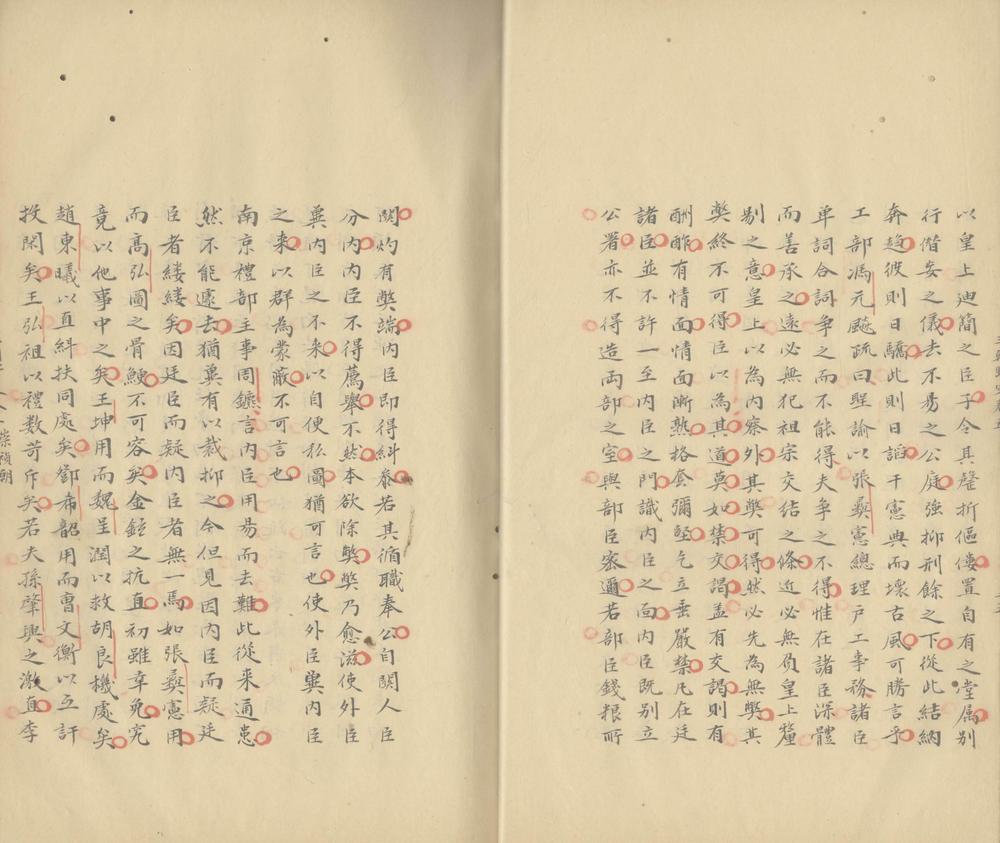 以皇上迪簡之臣子令其罄折傴僂置自有之堂属别
行偕妄之儀去不易之公庭強抑刑餘之下從此結納
奔趋彼則日驕此則日謟干憲典而壞古風可勝言乎
工部馮元飈疏曰聖諭以張彛憲總理戶工事務諸臣
单詞合詞争之而不能得夫争之不得惟在諸臣深體
而善承之遠必無犯祖宗交結之條近必無負皇上釐
别之意皇上以為内察外其獘可得然必先為無獘其
獘終不可得臣以為其道莫如禁交謁盖有交謁則有
酬酢有情面情面漸熟格套彌堅乞立垂嚴禁凡在廷
諸臣並不許一至内臣之門識内臣之面内臣既别立
公署亦不得造両部之室與部臣宻邇若部臣錢粮所
関灼有獘端内臣即得糾叅若其循職奉公自関人臣
分内内臣不得薦舉不然本欲除獘獘乃愈滋使外臣
冀内臣之不来以自便私圖猶可言也使外臣冀内臣
之来以群為蒙蔽不可言也
南京禮部主事周鑣言内臣用易而去難此從来通患
然不能遽去猶冀有以裁抑之今但見因内臣而疑廷
臣者縷縷矣因廷臣而疑内臣者無一焉如張彛憲用
而高弘圖之骨鯁不可容矣金鉉之抗直初雖幸免究
竟以他事中之矣王坤用而魏呈潤以救胡良機處矣
趙東曦以直糾扶同處矣鄧希韶用而曹文衡以互訐
投閑矣王弘祖以禮數苛斥矣若夫孫肇興之激直李
崇禎朝